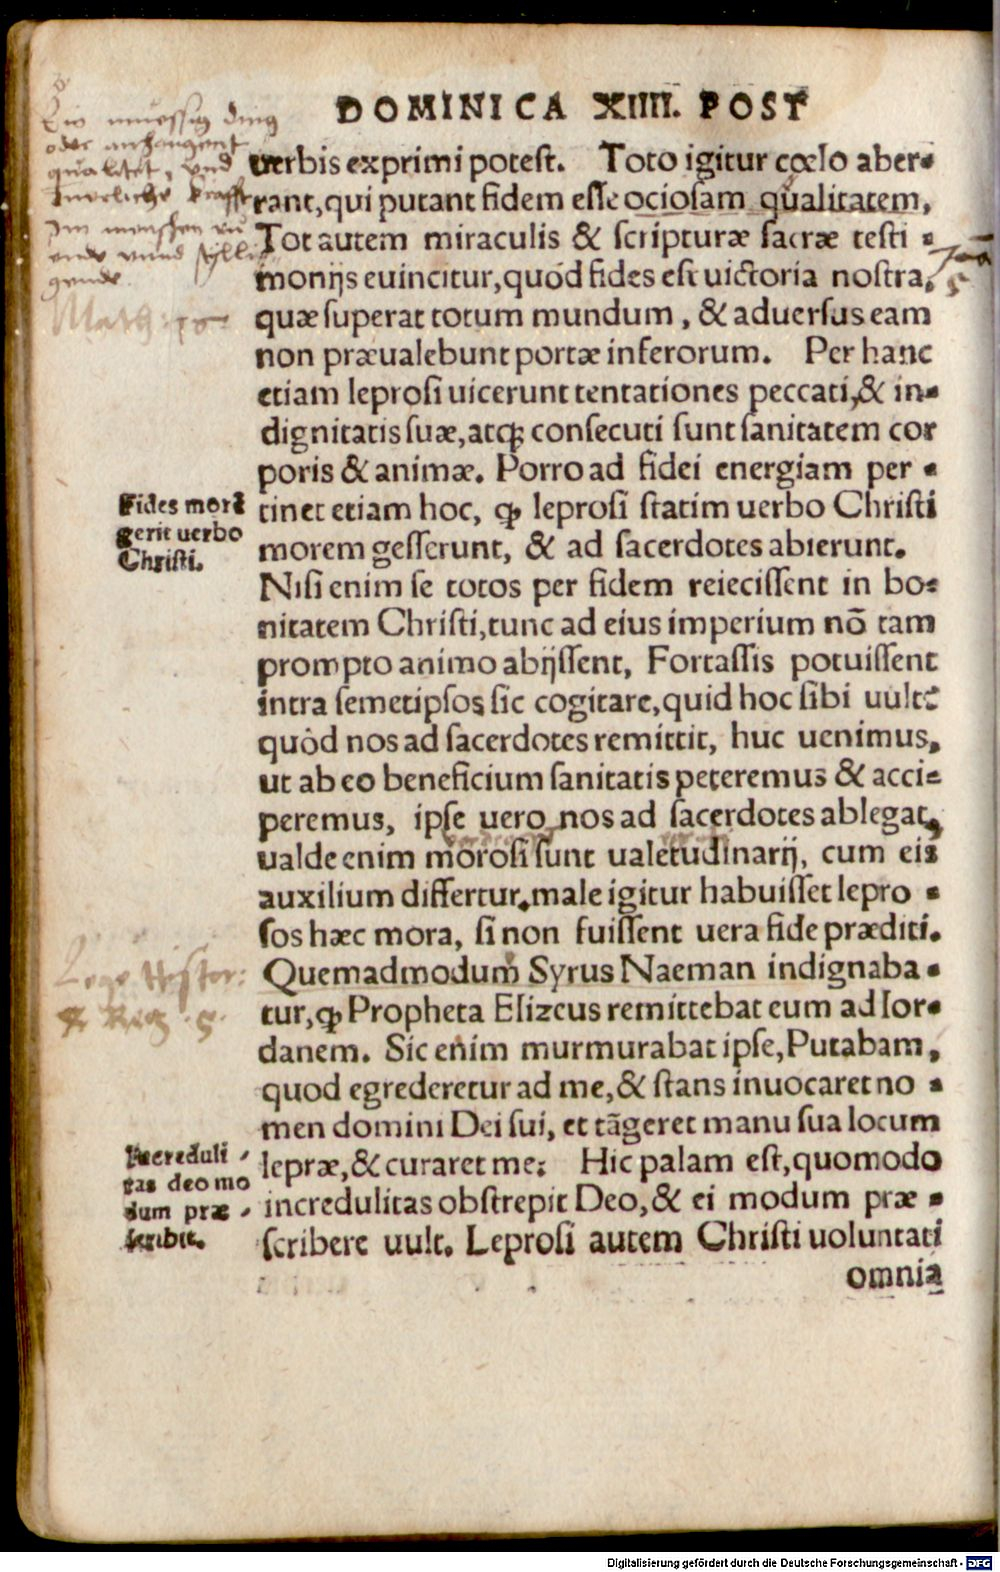 DOMINICA XIIII. POST
Ein muessig ding
oder anhangent
qualitet, und
Innerliche krafft
Im menschen
Math: 16
uerbis exprimi potest. Toto igitur cœlo aber-
rant, qui putant fidem esse ociosam qualitatem,
Tot autem miraculis & scripturæ sacræ testi-
monijs euincitur, quod fides est uictoria nostra,
5
quæ superat totum mundum, & aduersus eam
non præualebunt portæ inferorum. Per hanc
etiam leprosi uicerunt tentationes peccati, & in-
dignitatis suæ, atq; consecuti sunt sanitatem cor
poris & animæ. Porro ad fidei energiam per-
Fides mori
gerit uerbo
Christi.
tinet etiam hoc, ꝙ leprosi statim uerbo Christi
morem gesserunt, & ad sacerdotes abierunt.
Nisi enim se totos per fidem reiecissent in bo-
nitatem Christi, tunc ad eius imperium nō tam
prompto animo abijssent, Fortassis potuissent
intra semetipsos sic cogitare, quid hoc sibi uult?
quòd nos ad sacerdotes remittit, huc uenimus,
ut ab eo beneficium sanitatis peteremus & acci-
peremus, ipse uero nos ad sacerdotes ablegat,
ualde enim morosi sunt ualetudinarij, cum eis
auxilium differtur, male igitur habuisset lepro-
sos hæc mora, si non fuissent uera fide præditi.
Lege Histor:
4 Reg. 5.
Quemadmodum Syrus Naeman indignaba-
tur, ꝙ Propheta Elizeus remittebat eum ad Ior-
danem. Sic enim murmurabat ipse, Putabam,
quod egrederetur ad me, & stans inuocaret no-
men domini Dei sui, et tāgeret manu sua locum
Increduli-
tas deo mo
dum præ-
scribit.
lepræ, & curaret me; Hic palam est, quomodo
incredulitas obstrepit Deo, & ei modum præ-
scribere uult. Leprosi autem Christi uoluntati
omnia
Digitalisierung gefördert durch die Deutsche Forschungsgemeinschaft - DFG